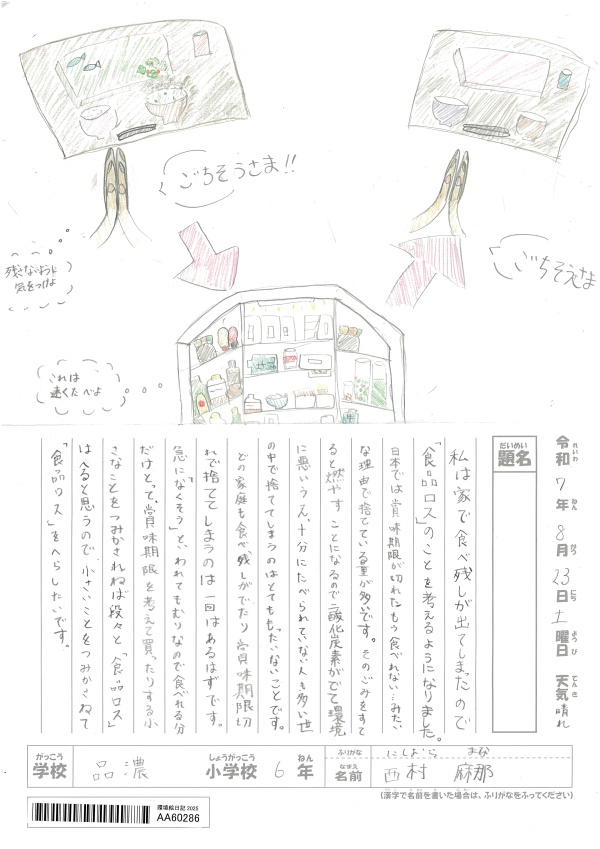 ごちそうさま!!
残さないように
気をつけよ
これは
速くたべよ
令和 7年 8月 23日 土曜日 天気 晴れ
れいわ ねん がつ にち ようび てんき
だいめい
題名
私は家で食べ残しが出てしまったので
「食品ロス」のことを考えるようになりました。
日本では賞味期限が切れたもう食べれない…みたい
な理由で捨てている量が多いです。そのごみをすて
ると燃やすことになるので二酸化炭素がでて環境
に悪いうえ、十分にたべられていない人も多い世
の中で捨ててしまうのはとてももったいないことです。
どの家庭も食べ残しがでたり賞味期限切
れで捨ててしまうのは一回はあるはずです。
急に「なくそう」といわれてもむりなので食べれる分
だけとって、賞味期限を考えて買ったりする小
さなことをつみかされねば段々と「食品ロス」
はへると思うので、小さいことをつみかさねて
「食品ロス」をへらしたいです。
がっこう しょうがっこう ねん ふりがな にしむら まな
学校 品濃 小学校 6年 なまえ 名前 西村 麻那
(漢字で名前を書いた場合は、ふりがなをふってください)
環境絵日記 2025
AA60286